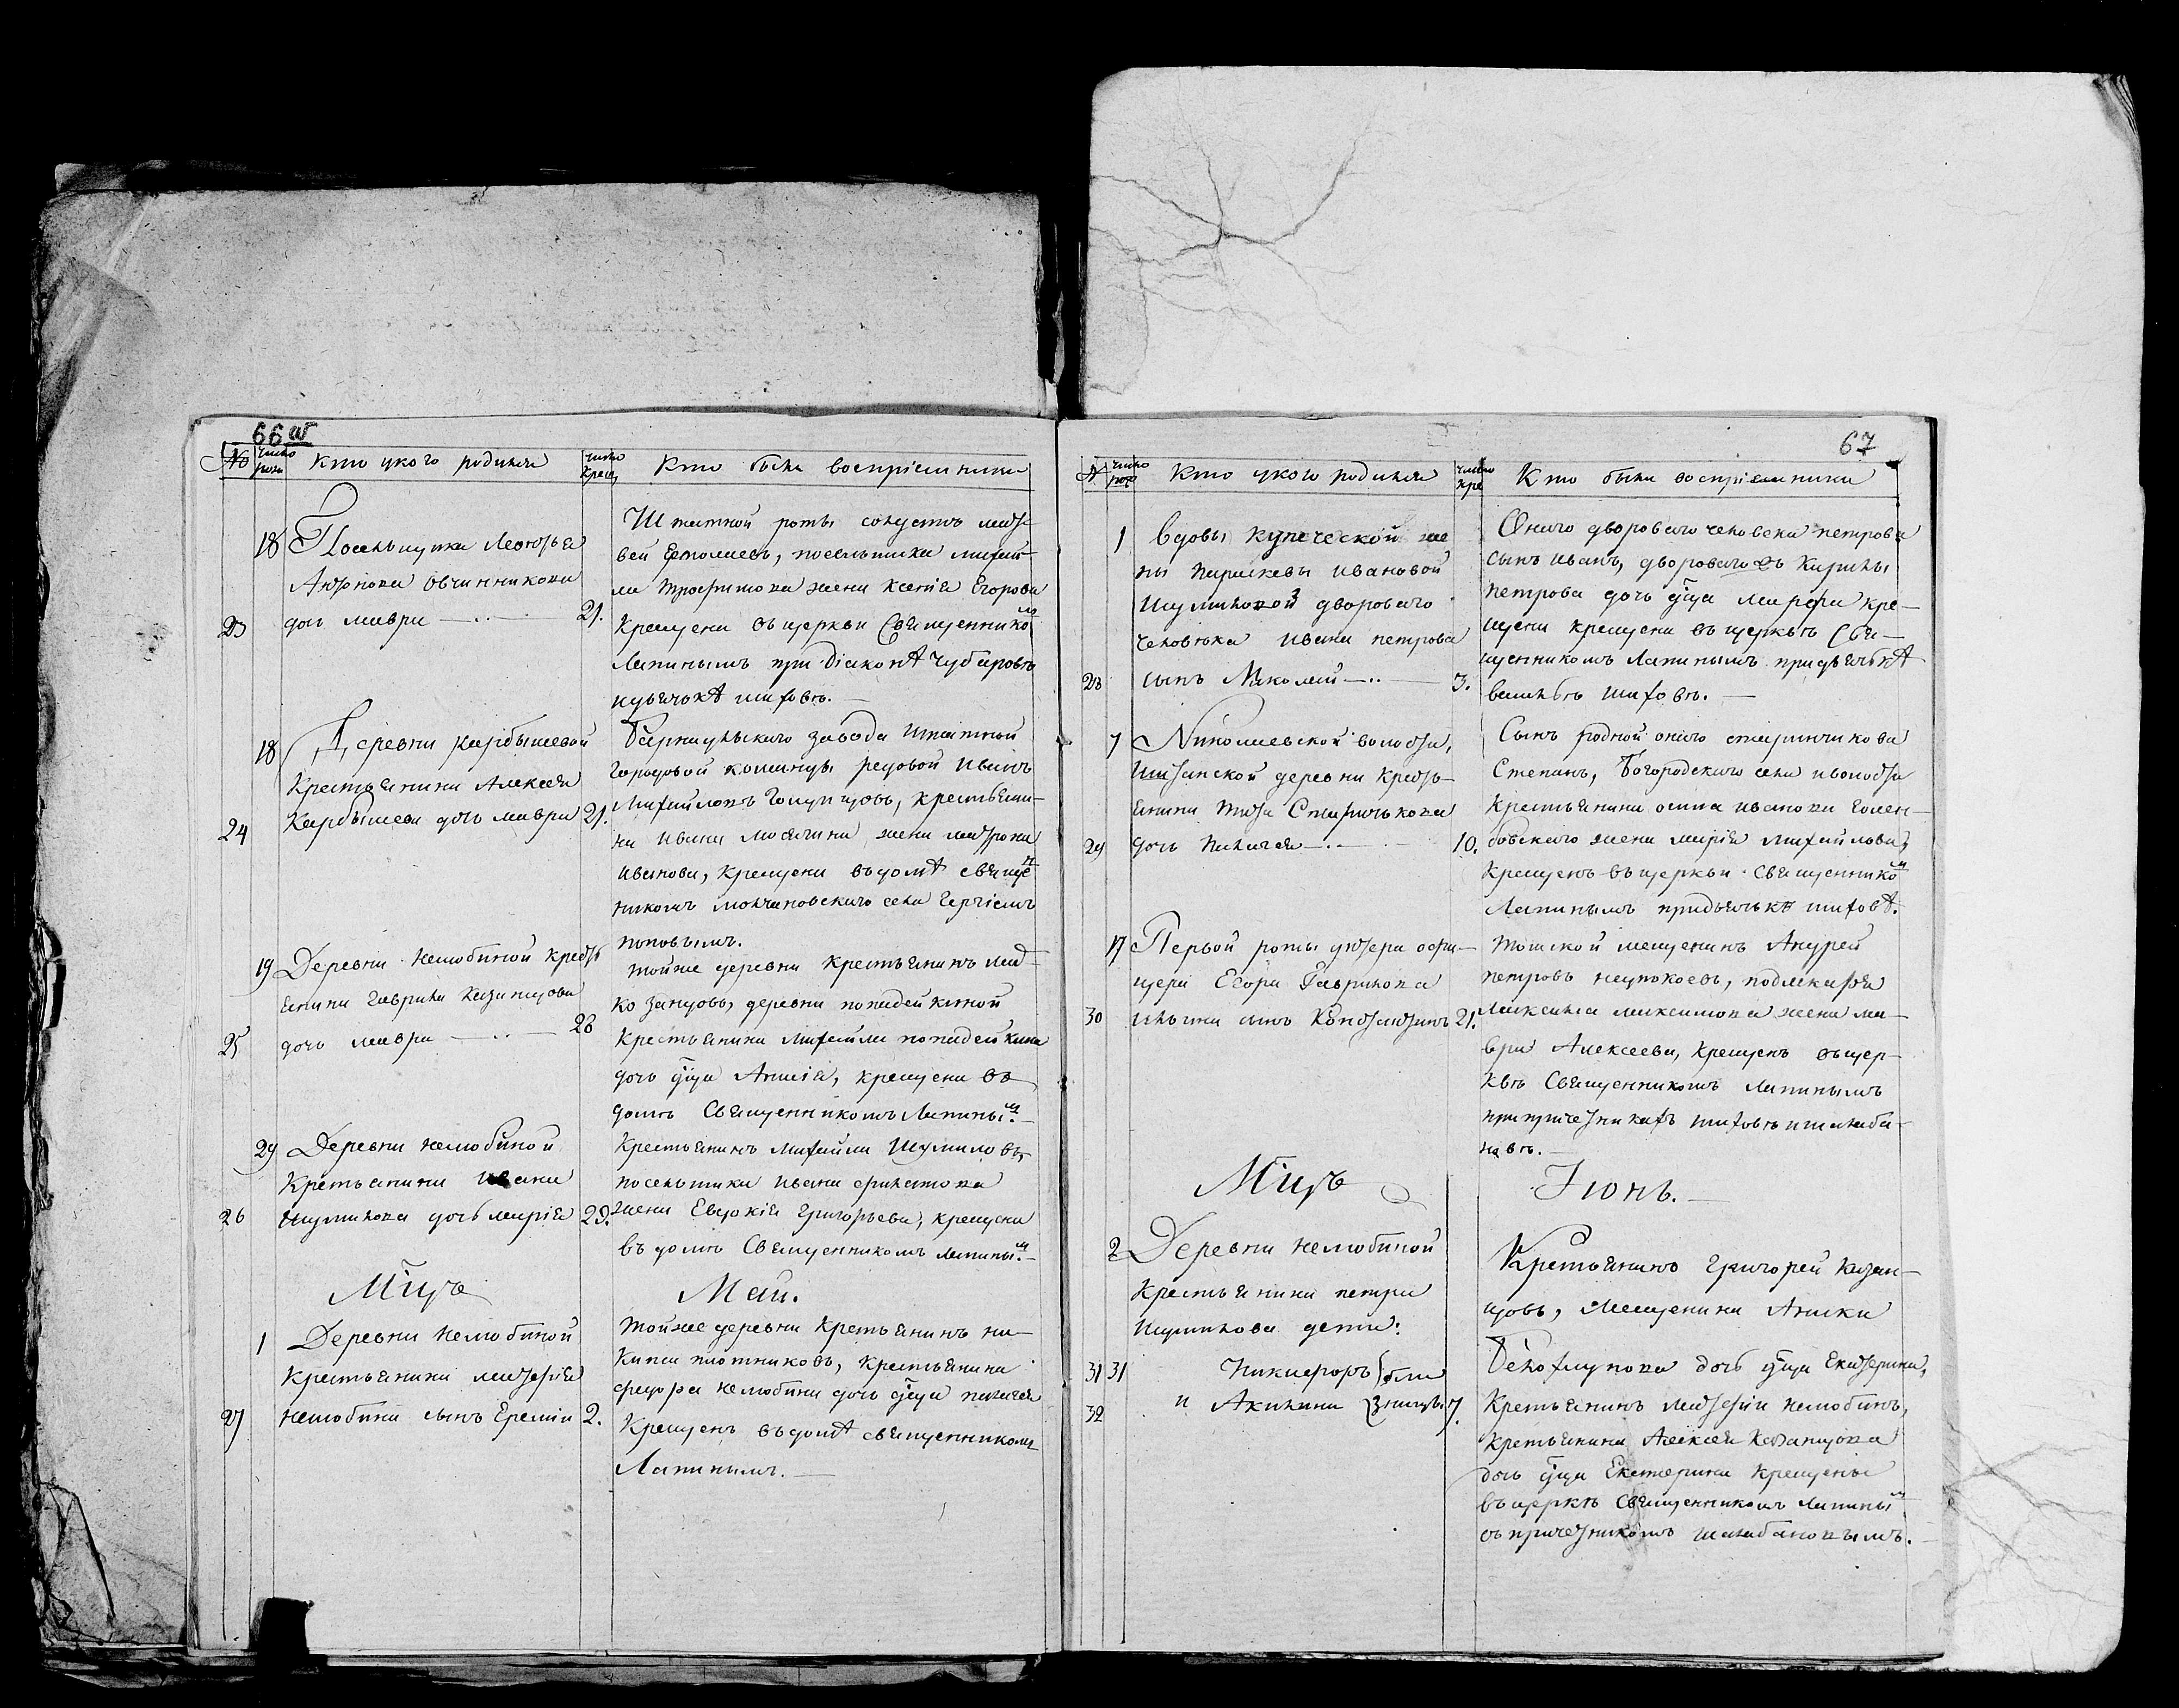 66 об
№
число рож
Кто у кого родился
число крещ
Кто были воспріемники
18 Посельщика Леонтья
Антонова Овчинникова
23 дочь Мавра 21.
Штатной роты солдатъ Мат-
вей Ермолаевъ, посельщика Михай-
ла Трофимова жена Ксенія Егорова
крещена въ церкви Священником
Лапинымъ при діаконѣ Чубаровѣ
и дьячкѣ Шиховѣ.
18 Деревни Карбышевой
крестьянина Алексея
24 Карбышева дочь Мавра 21.
Барнаульскаго завода Штатной
городовой команды редовой Иванъ
Михайловъ Голупцовъ, крестьяни-
на Ивана Мосягина жена Матрона
Иванова, крещена въ домѣ Священ
никомъ Молчановскаго села Георгіемъ
Поповымъ.
19 Деревни Нелюбиной крест
янина Гаврила Казанцова
25 дочь Мавра 23
Тойже деревни крестьянинъ
Козанцовъ, деревни Попадейкиной
крестьянина Михайла Попадейкина
дочь дѣца Анисія, крещена въ
домѣ Священникомъ Лапиным
29 Деревни Нелюбиной
Кретьянина Ивана
26 Шумилова дочь Марія 29.
Крестьянинъ Михайла Шумиловъ,
посельщика Ивана Филатова
жена Евдокія Григорьева, крещена
въ домѣ Священникомъ Лапиным
Мцъ Май.
1 Деревни Нелюбиной
Крестьянина Матфея
27 Нелюбина сынъ Еремий 2.
Тойже деревни Кретьянинъ Ни-
кита Плотниковъ, крестьянина
Федора Нелюбина дочь дѣца Пелагея
Крещенъ въ домѣ Священником
Лапинымъ.
67
№
число рож
Кто у кого родился
число кре
Кто были воспріемники
1 Вдовы купеческой же
ны Парасковы Ивановой
Шумиловой дворового
человека Ивана Петрова
28 сынъ Николай 3.
Онаго дворового человека Петрова
сынъ Иванъ, дворового Кирилы
Петрова дочь дѣца Марфа кре-
щена крещена въ церквѣ Свя-
щенникомъ Лапинымъ при дьячкѣ
Шиховѣ.
7 Николаевской волости,
деревни Крест-
янина Тита Старичкова
29 дочь Пелагея 10.
Сынъ родной онаго Старичкова
Степанъ, Богородскаго села и волости
крестьянина Осипа Иванова Голем-
бовскаго жена Марія Михайлова,
Крещенъ въ церкви Священником
Лапинымъ при дьячкѣ Шиховѣ.
17 Первой роты унтера офи-
цера Егора Гаврилова
30 Ильина сынъ Констянтинъ 21.
Томской мещенинъ Андрей
Петровъ Неупокоевъ, подлекаря
Максима Максимова жена Ма-
вра Алексеева, крещенъ въ цер-
квѣ Священникомъ Лапинымъ
при причетникахъ Шиховѣ и Шалаба-
новѣ.
Мцъ Іюнь.
2 Деревни Нелюбиной
Крестьянина Петра
Шумилова дети:
31 31 Никифоръ
32 и Акилина близнецы. 7.
Кретьянинъ Григорей Казан-
цовъ, Мещенина Аники
Белохлупова дочь дѣца Екатерина,
Кретьянинъ Матфей Нелюбинъ,
кретьянина Алексея Козанцова
дочь дѣца Екатерина Крещены
въ церквѣ Священникомъ Лапиным
съ причетникомъ Шалабановымъ.